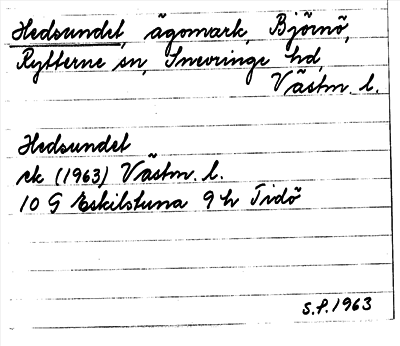 Hedsundet, ägomark, Björnö,
Rytterne sn, Snevringe hd,
Västm. l.
Hedsundet
ek (1963) Västm. l.
10 G Eskilstuna 9 h Tidö
S.P. 1963